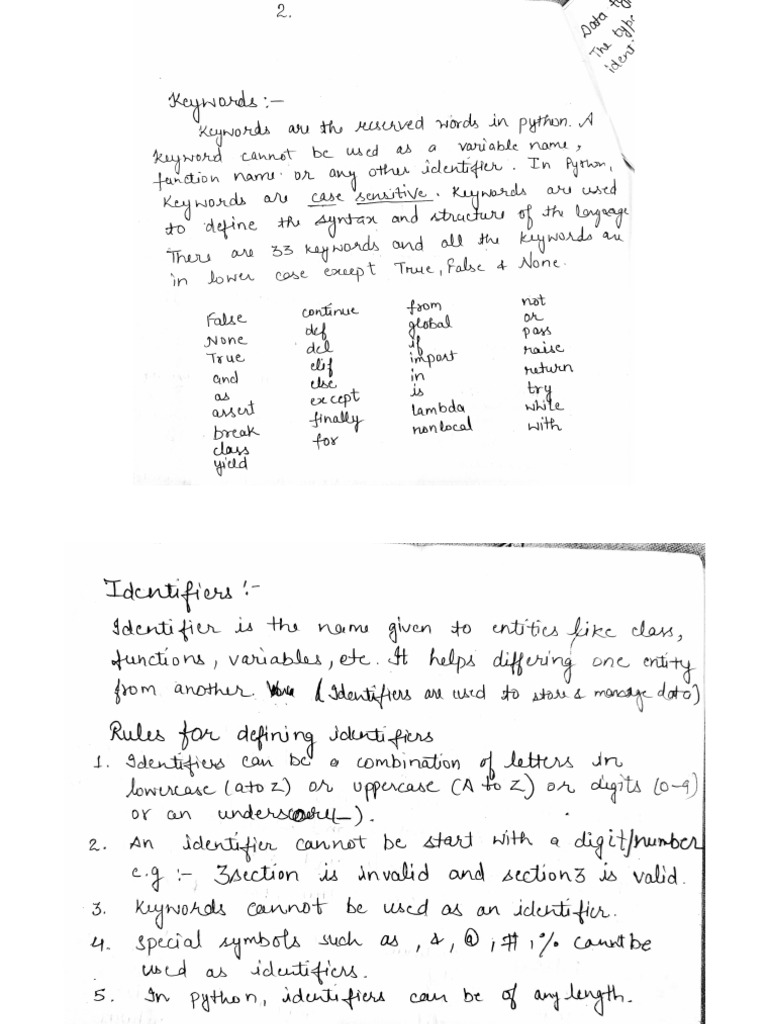 2.
Data ty
The type
ident
Keywords :-
Keywords are the reserved words in python. A
keyword cannot be used as a variable name,
function name or any other identifier. In Python,
Keywords are case sensitive. Keywords are used
to define the syntax and structure of the language
There are 33 keywords and all the keywords are
in lower case except True, False & None.
False continue from not
None def global or
True del if pass
and elif import raise
as else in return
assert except is try
break finally lambda while
class for nonlocal with
yield
Identifiers :-
Identifier is the name given to entities like class,
functions, variables, etc. It helps differing one entity
from another. (Identifiers are used to store & manage data)
Rules for defining identifiers
1. Identifiers can be a combination of letters in
lowercase (a to z) or uppercase (A to Z) or digits (0-9)
or an underscore(_).
2. An identifier cannot be start with a digit/number
e.g :- 3section is invalid and section3 is valid.
3. Keywords cannot be used as an identifier.
4. Special symbols such as , & , @ , # , % cannot be
used as identifiers.
5. In python, identifiers can be of any length.